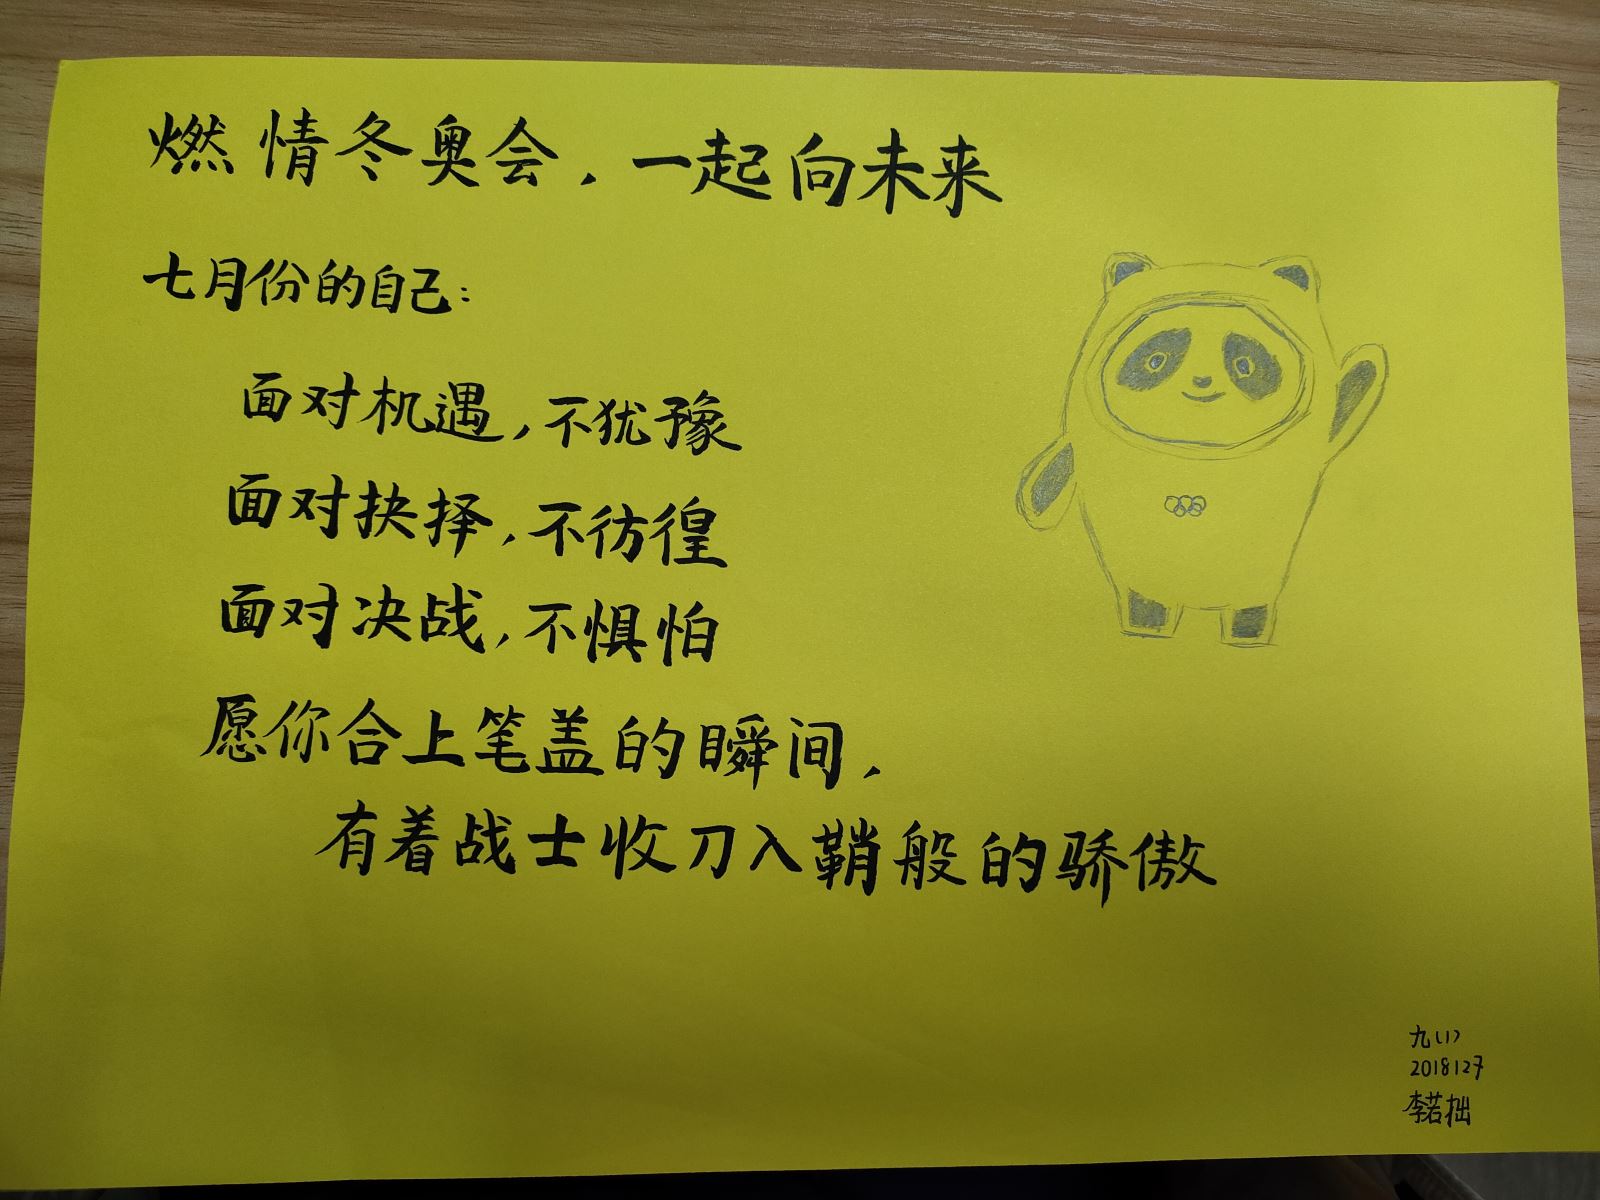 燃情冬奥会，一起向未来
七月份的自己：
面对机遇，不犹豫
面对抉择，不彷徨
面对决战，不惧怕
愿你合上笔盖的瞬间，
有着战士收刀入鞘般的骄傲
九（1）
2018127
李若拙